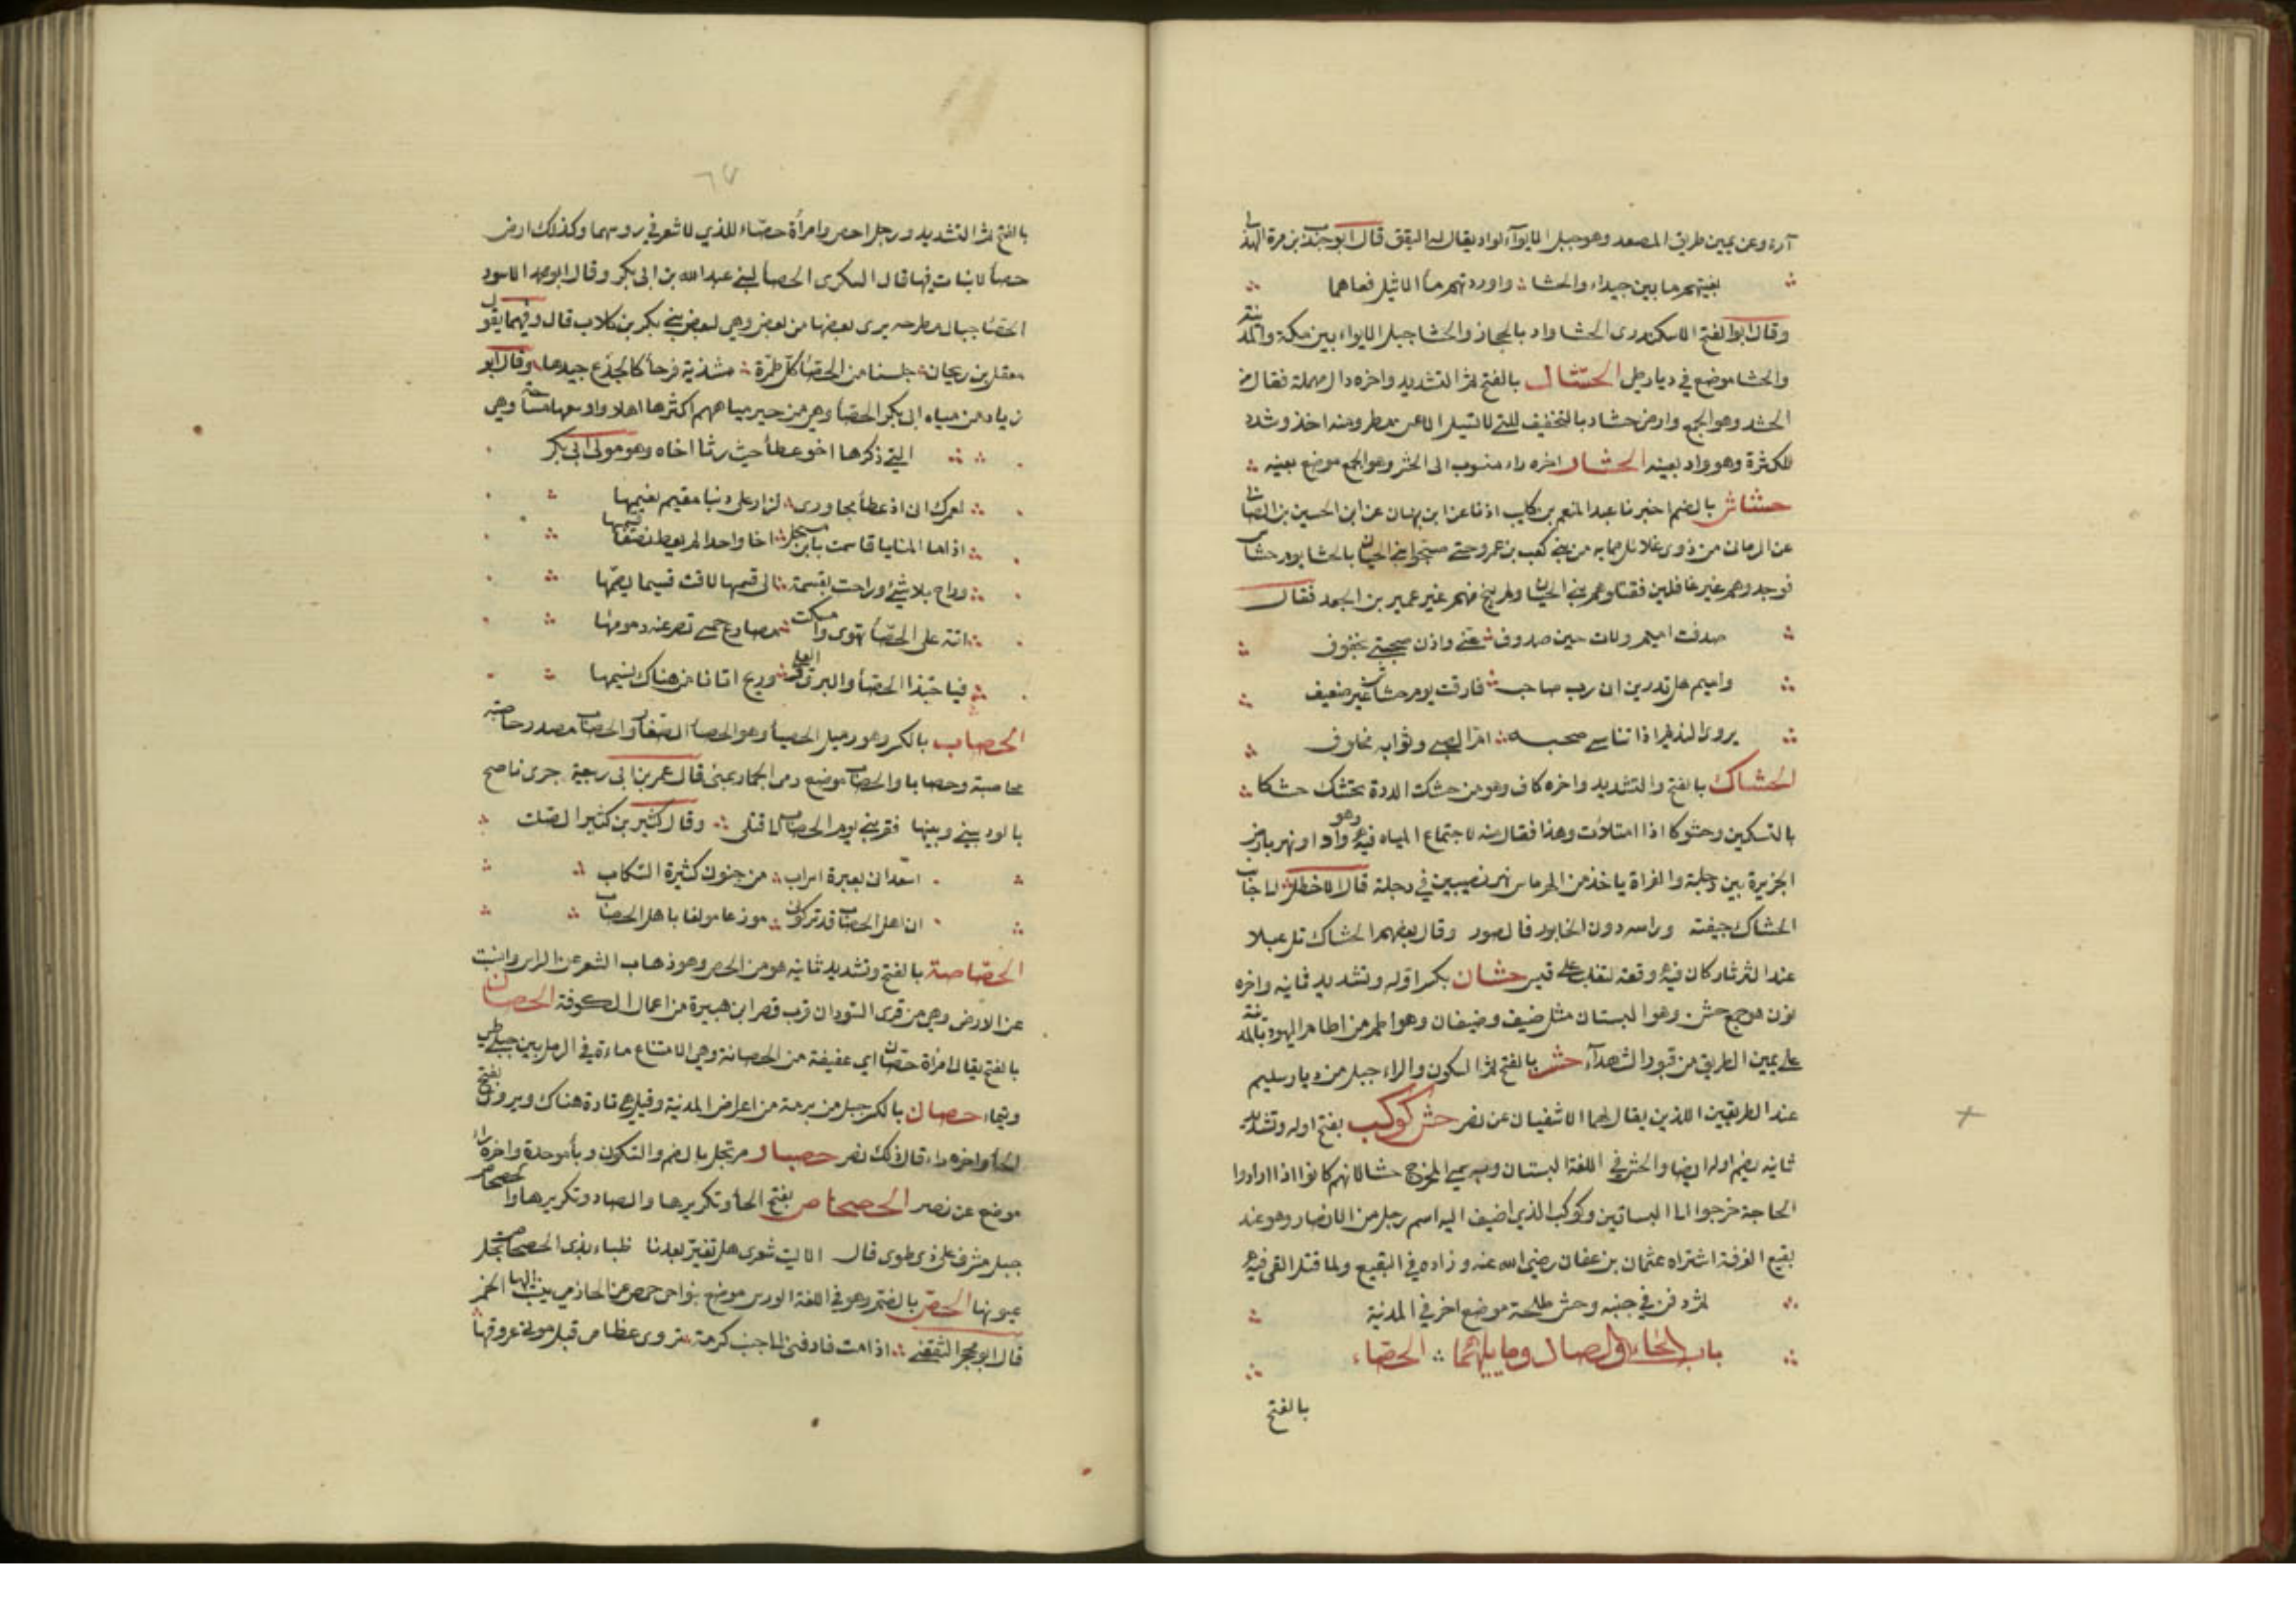 آرة وعن يمين طريق المصعد وهو جبل الابوآء لواد يقال له البعق قال ابو جندب بن مرة الهذلي
بغيتهم ما بين حيداء والحشا واوردتهم مأ الاثيل فعاهما
وقال ابو الفتح الاسكندرى الحشا واد بالحجاز والحشا جبل الابواء بين مكة والمدينة
والحشا موضع في ديار طي الحشّاد بالفتح ثم التشديد واخره دال مهملة فعال من
الحشد وهو الجمع وارض حشاد بالتخفيف للتي لا تسيل الا عن مطر ومنه اخذ وشدد
للكثرة وهو واد بعينه الحشار اخره راء منسوب الى الحشر وهو الجمع موضع بعينه
حشاش بالضم اخبرنا عبد المنعم بن كليب اذنا عن ابن نبهان عن ابن الحسين بن الصابي
عن الرماني من ذوي غلائل من بني كعب بن عمرو حتى صبحوا بني الحيان بالحشا يوم حشاش
فوجدوهم غير غافلين فقتلوهم بني الحيان ولم ينج منهم غير عمير بن الجعد فقال
صدفت اميم ولات حين صدوف عني واذن صحبتي بخفوف
واميم هل تدرين ان رب صاحب فارقت يوم حشاش غير ضعيف
يروى النديم اذا تناسى صحبه ام الصبي وثوابه مخلوف
الحشاك بالفتح والتشديد واخره كاف وهو من حشكت الدرة تحشك حشكا
بالتسكين وحشوكا اذا امتلأت وهذا فعال منه لاجتماع المياه فيه وهو واد او نهر بارض
الجزيرة بين دجلة والفراة ياخذ من الهرماس نهر نصيبين في دجلة قال الاخطل الى جانب
الحشاك جيفته وراسه دون الخابور فالصور وقال بعضهم الحشاك تل عبلا
عند الثرثار كان فيه وقعة لتغلب على قيس حشان بكسر اوله وتشديد ثانيه واخره
نون هو جمع حش وهو البستان مثل ضيف وضيفان وهو اطم من اطام اليهود بالمدينة
على يمين الطريق من قبور الشهدآء حشر بالفتح ثم السكون والراء جبل من ديار سليم
عند الطريقين اللذين يقال لهما الاشفيان عن نصر حش كوكب بفتح اوله وتشديد
ثانيه يضم اوله ايضا والحش في اللغة البستان وبه سمي المخرج حشا لانهم كانوا اذا ارادوا
الحاجة خرجوا الى البساتين وكوكب الذي اضيف اليه اسم رجل من الانصار وهو عند
بقيع الغرقد اشتراه عثمان بن عفان رضي الله عنه وزاده في البقيع ولما قتل القي فيه
ثم دفن في جنبه وحش طلحة موضع اخر في المدينة
باب الحاء والصاد وما يليهما الحصّاء
بالفتح
٦٧
بالفتح ثم التشديد ورجل احص وامرأة حصّاء للذي لا شعر في روسهما وكذلك ارض
حصأ لا نبات فيها قال السكرى الحصأ لبني عبد الله بن ابي بكر وقال ابو محمد الاسود
الحصّا جبال مطرحه يرى بعضها من بعض وهي لبعض بني بكر بن كلاب قال وفيهما يقول
معقل بن ريحان جلسنا من الحصّا كل طمرّة مشذبة فرحأ كالجذع جيدها وقال ابو
زياد من مياه ابي بكر الحصّأ وهي من خير مياههم اكثرها اهلا واوسعها مساحة وهي
التي ذكرها اخو عطأ حيث رثا اخاه وهو مولى ابي بكر
لعمرك ان اذ عطأ مجاورى لزار على دنيا مقيم نعيمها
اذا ما المنايا قاسمت بابن مسحل اخا واحدا لم يعط نصفا قسيمها
وراح بلا شئ وراحت بقسمة الى قسمها لاقت قسيما يضمها
اتته على الحصّأ تهوى وامسكت مصارع حمى تصرعنه ومومها
فيا حبّذا الحصّأ والبرق والعلى وريح اتانا من هناك نسيمها
الحصاب بالكسر وهو رميل الحصبأ وهو الحصأ الصغار والحصاب مصدر حاصبته
محاصبة وحصابا والحصاب موضع رمى الجمار بمنى قال عمر بن ابى ربيعة جرى ناصح
بالود بيني وبينها فقربني يوم الحصاب الى قتلى وقال كثير بن كثير الصّلت
اسعدانى بعبرة اسراب من جفون كثيرة التسكاب
ان اهل الحصاب قد تركونى موزعا مولعا باهل الحصاب
الحصّاصة بالفتح وتشديد ثانيه هو من الحص وهو ذهاب الشعر عن الراس والنبت
عن الارض وهي من قرى السّودان قرب قصر ابن هبيرة من اعمال الكوفة الحصان
بالفتح يقال امرأة حصان اى عفيفة من الحصانة وهي الامتناع ماءة في الرمل بين جبلي طي
وتيماء حصان بالكسر جبل من برمة من اعراض المدينة وقيل هي قارة هناك ويروى بفتح
الحأ واخره راء قال ذلك نصر حصبار مرتجل بالضم والتسكون وبأ موحدة واخره راء
موضع عن نصر الحصحاص بفتح الحأ وتكريرها والصاد وتكريرها والحصحاص
جبل مشرف على ذى طوى قال الا ليت شعرى هل تغير بعدنا ظباء بذى الحصحاص نجل
عيونها الحصّ بالضم وهو في اللغة الورس موضع بنواحى حمص عن الحازمي ينسب اليها الخمر
قال ابو محجن الثقفي اذا مت فادفنى الى جنب كرمة تروى عظامى قبل موتى عروقها